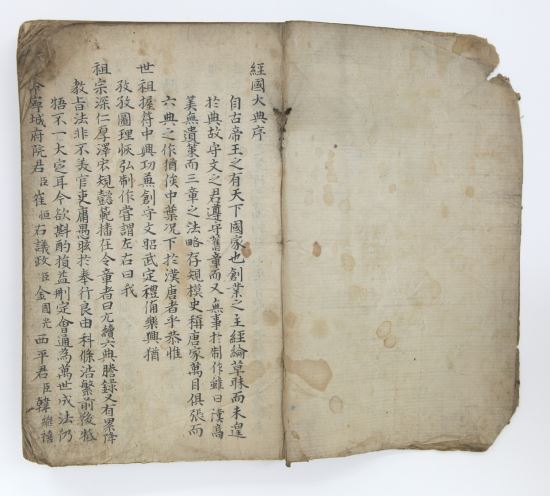 經國大典序
自古帝王之有天下國家也創業之主經綸草昧而未遑
於典故守文之君遵守舊章而又無事於制作雖曰漢高
筭無遺策而三章之法略存規模史稱唐家萬目俱張而
六典之作猶俟中葉況下於漢唐者乎恭惟
世祖握符中興功兼創守文昭武定禮備樂興猶
孜孜圖理恢弘制作嘗謂左右曰我
祖宗深仁厚澤宏規懿範播在令章者曰元續六典謄錄又有累降
敎旨法非不美官吏庸愚眩於奉行良由科條浩繁前後牴
牾不一大定耳今欲斟酌損益刪定會通爲萬世成法仍
令寧城府院君臣崔恒右議政臣金國光西平君臣韓繼禧